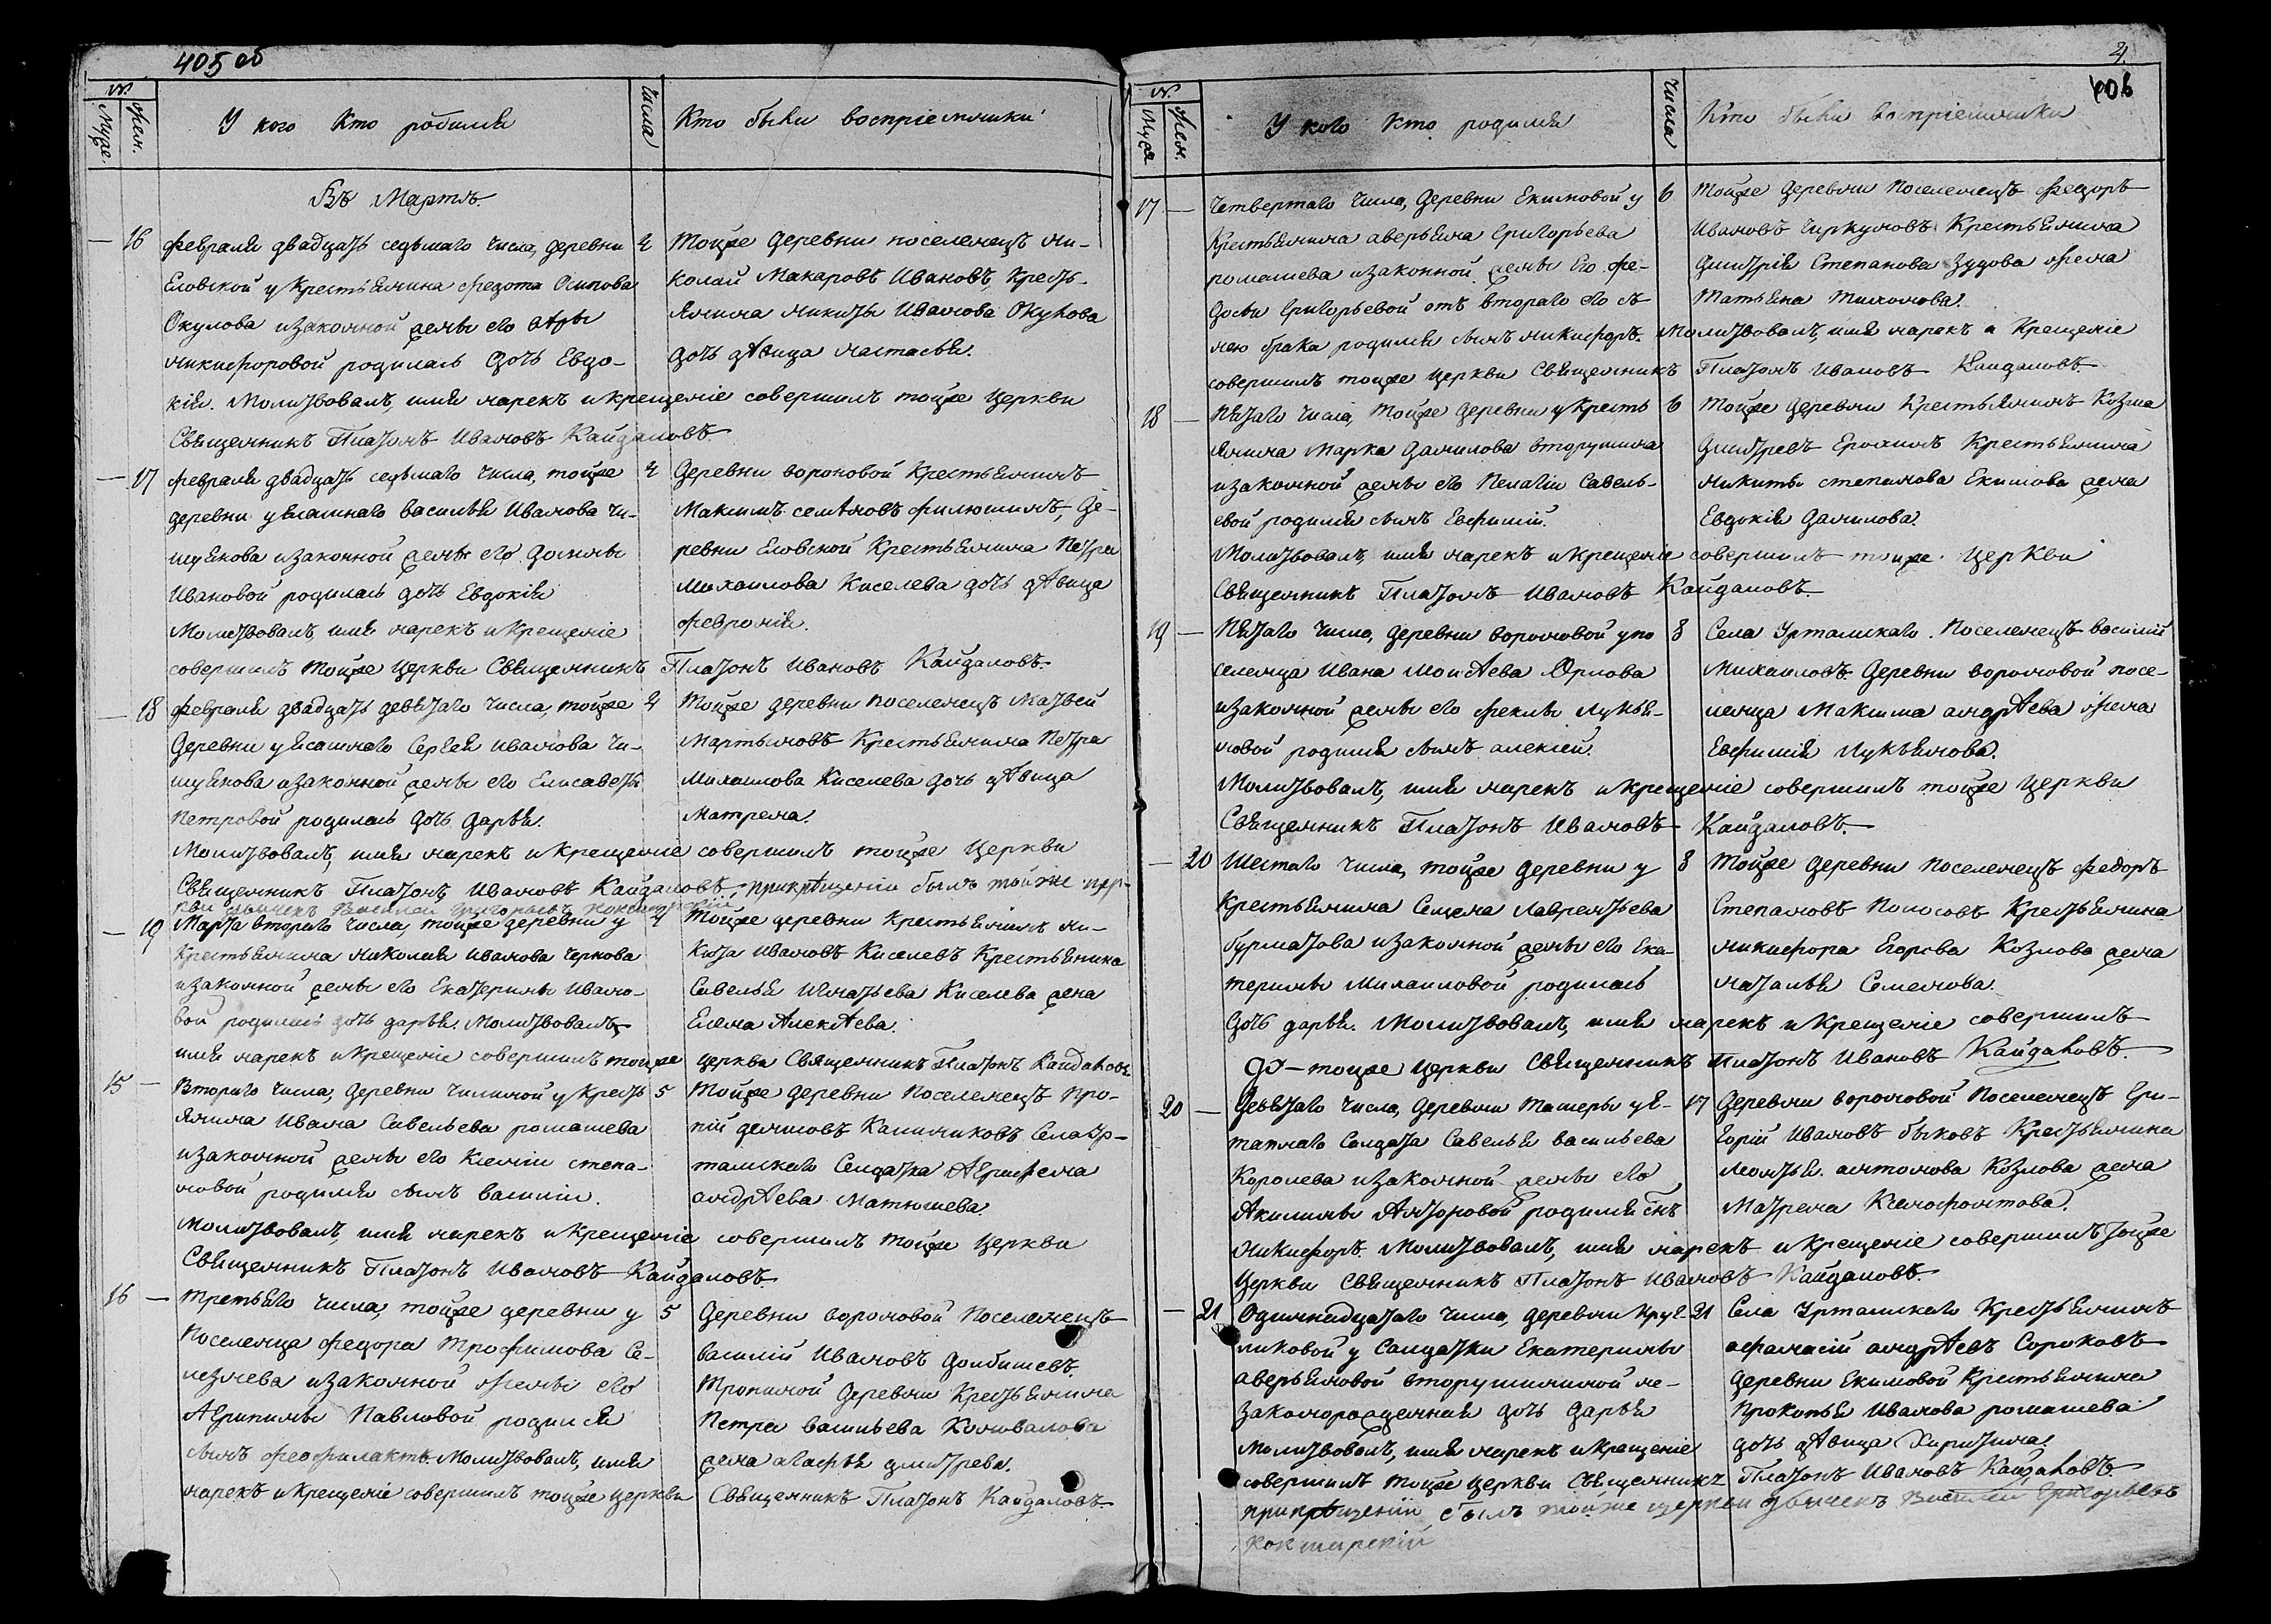 405 об
№.
Муже.
Жен.
У кого Кто родился
Числа
Кто были воспріемники
Въ Мартѣ.
16 февраля двадцать седьмаго числа, деревни 4 Тойже деревни поселенецъ Ни-
Еловской у Крестьянина Федота Осипова колай Макаровъ Ивановъ, Кресть-
Окулова и законной жены его
Никифоровой родилась дочь Евдо- дочь дѣвица Настасья.
кія. Молитвовалъ, имя нарекъ и крещеніе совершилъ тойже Церкви
Священникъ Платонъ Ивановъ Кайдаловъ.
17 февраля двадцать седьмаго числа, тойже 4 Деревни вороновой Крестьянинъ
деревни у Ясашнаго Василья Иванова Чи- Максимъ семѣновъ филюшинъ, де-
шуякова и законной жены его Домны ревни Еловской Крестьянина Петра
Ивановой родилась дочь Евдокія Михаилова Киселева дочь дѣвица
Молитвовалъ, имя нарекъ и Крещеніе Февронія.
совершилъ тойже Церкви Священникъ Платонъ Ивановъ Кайдаловъ.
18 февраля двадцать девятаго числа, тойже 4 Тойже деревни поселенецъ Матвей
деревни у Ясашнаго Сергѣя Иванова Чи- Мартыновъ Крестьянина Петра
шуякова и законной жены его Елисаветы Михаилова Киселева дочь дѣвица
Петровой родилась дочь Дарья. Матрена.
Молитвовалъ, имя нарекъ и Крещеніе совершилъ тойже Церкви
Священникъ Платонъ Ивановъ Кайдаловъ, прикрѣщеніи былъ тойже цер-
кви дьячекъ Василей Григорьевъ
19 Марта втораго числа, тойже деревни у 4 Тойже деревни Крестьянинъ Ни-
Крестьянина Николая Иванова Чернова кита Ивановъ Киселевъ Крестьянина
и законной жены его Екатерины Ивано- Савелья Игнатьева Киселева жена
вой родилась дочь дарья. Молитвовалъ, Елена Алексѣева.
имя нарекъ и крещеніе совершилъ тойже церкви Священникъ Платонъ Кайдаловъ.
15 Втораго числа, деревни Чилиной у Кресть 5 Тойже деревни Поселенецъ Про-
янина Ивана Савельева ромашева
и законной жены его Ксеніи степа- талискаго Солдатка Агрифена
новой родился сынъ Василій. андрѣева Матюшева.
Молитвовалъ, имя нарекъ и Крещеніе совершилъ тойже Церкви
Священникъ Платонъ Ивановъ Кайдаловъ.
16 Третьяго числа, тойже деревни у 5 Деревни вороновой Поселенецъ
Поселенца Федора Трофимова Се- василій Ивановъ
лезнева и законной жены его Деревни Крестьянина
Агрипины Павловой родился Петра васильева Коновалова
сынъ Феофилактъ. Молитвовалъ, имя жена агафья дмитрева.
нарекъ и крещеніе совершилъ тойже церкви Священникъ Платонъ Кайдаловъ.
406
№.
Муже
Жен.
У кого Кто родился
Числа
Кто были воспріемники
17 Четвертаго числа, Деревни Екимовой у 6 Тойже деревни Поселенецъ Федоръ
Крестьянина аверьяна Григорьева Ивановъ Чиркуновъ Крестьянина
ромашева и законной жены Его Фе- Дмитрія Степанова Зудова жена
досьи Григорьевой отъ втораго его съ Татьяна Тихонова.
нею брака родился сынъ Никифоръ. Молитвовалъ, имя нарекъ и Крещеніе
совершилъ тойже церкви Священникъ Платонъ Ивановъ Кайдаловъ
18 Пятаго числа, Тойже деревни у Кресть 6 Тойже деревни Крестьянинъ Козма
янина Марка Данилова вторушина Дмитревъ Крестьянина
и законной жены его Пелагіи Савель- Никиты степанова Екимова жена
евой родился сынъ Евфимій. Евдокія Данилова.
Молитвовалъ, имя нарекъ и крещеніе совершилъ тойже церкви
Священникъ Платонъ Ивановъ Кайдаловъ.
19 Пятаго числа, деревни вороновой у по 8 Села Урталискаго Поселенецъ василій
селенца Ивана Моисѣева Орлова Михаиловъ Деревни вороновой посе-
и законной жены его Феклы Лукья- ленца Максима андрѣева жена
новой родился сынъ алексій. Евфимія Лукьянова.
Молитвовалъ, имя нарекъ и крещеніе совершилъ тойже церкви
Священникъ Платонъ Ивановъ Кайдаловъ.
20 Шестаго числа, тойже деревни у 8 Тойже деревни Поселенецъ Федоръ
Крестьянина Семена Лаврентьева Степановъ Колосовъ Крестьянина
бурматова и законной жены его Ека- Никифора Егорова Козлова жена
терины Михаиловой родилась Наталья Семенова.
дочь дарья. Молитвовалъ, имя нарекъ и Крещеніе совершилъ
тойже церкви Священникъ Платонъ Ивановъ Кайдаловъ.
20 Девятаго числа, деревни 17 Деревни вороновой Поселенецъ Гри-
Солдата Савелья васильева горій Ивановъ быковъ Крестьянина
Королева и законной жены его Леонтья антонова Козлова жена
Акилины Антоновой родился сынъ Матрена Ксенофонтова.
Никифоръ. Молитвовалъ, имя нарекъ и Крещеніе совершилъ тойже
Церкви Священникъ Платонъ Ивановъ Кайдаловъ.
21 Одиннадцатаго числа, деревни Круг- 21 Села Урталискаго Крестьянинъ
ликовой у Солдатки Екатерины афанасій андрѣевъ Сороковъ
аверьяновой вторушининой не- деревни Екимовой Крестьянина
законорожденная дочь Дарья Прокопья Иванова ромашева
Молитвовалъ, имя нарекъ и крещеніе дочь дѣвица Харитина.
совершилъ тойже церкви Священникъ Платонъ Ивановъ Кайдаловъ.
прикрѣщеніи былъ тойже церкви дьячекъ Василей Григорьевъ